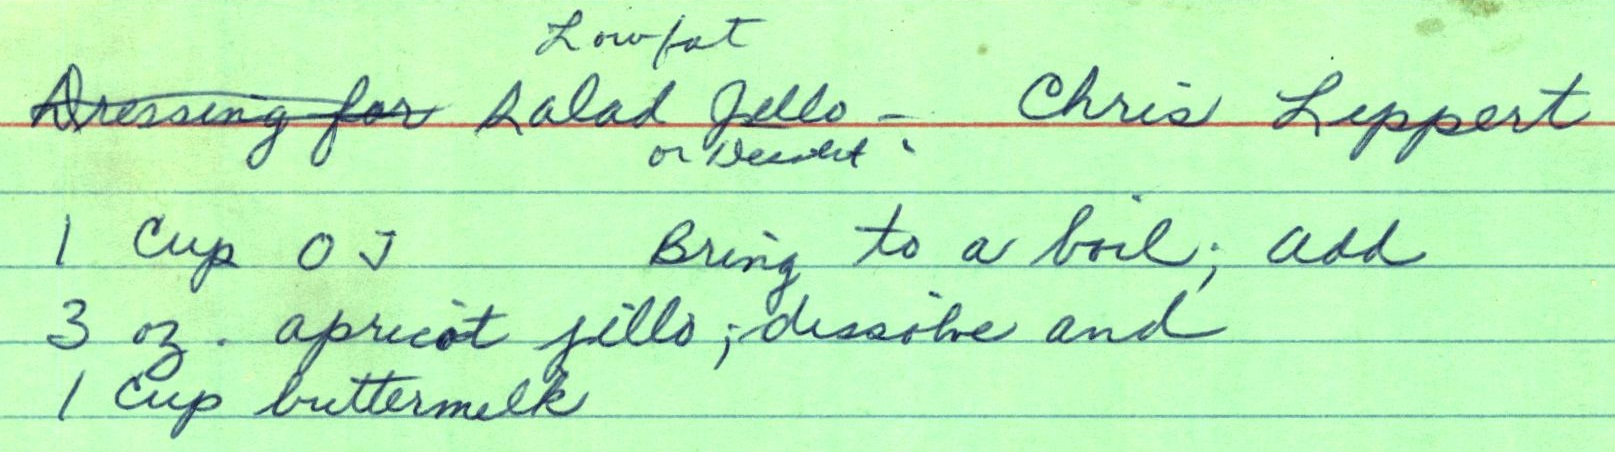 Lowfat
Dressing for Salad Jello - Chris Leppert
or Dessert
1 Cup OJ Bring to a boil; add
3 oz. apricot jello; dissolve and
1 Cup buttermilk